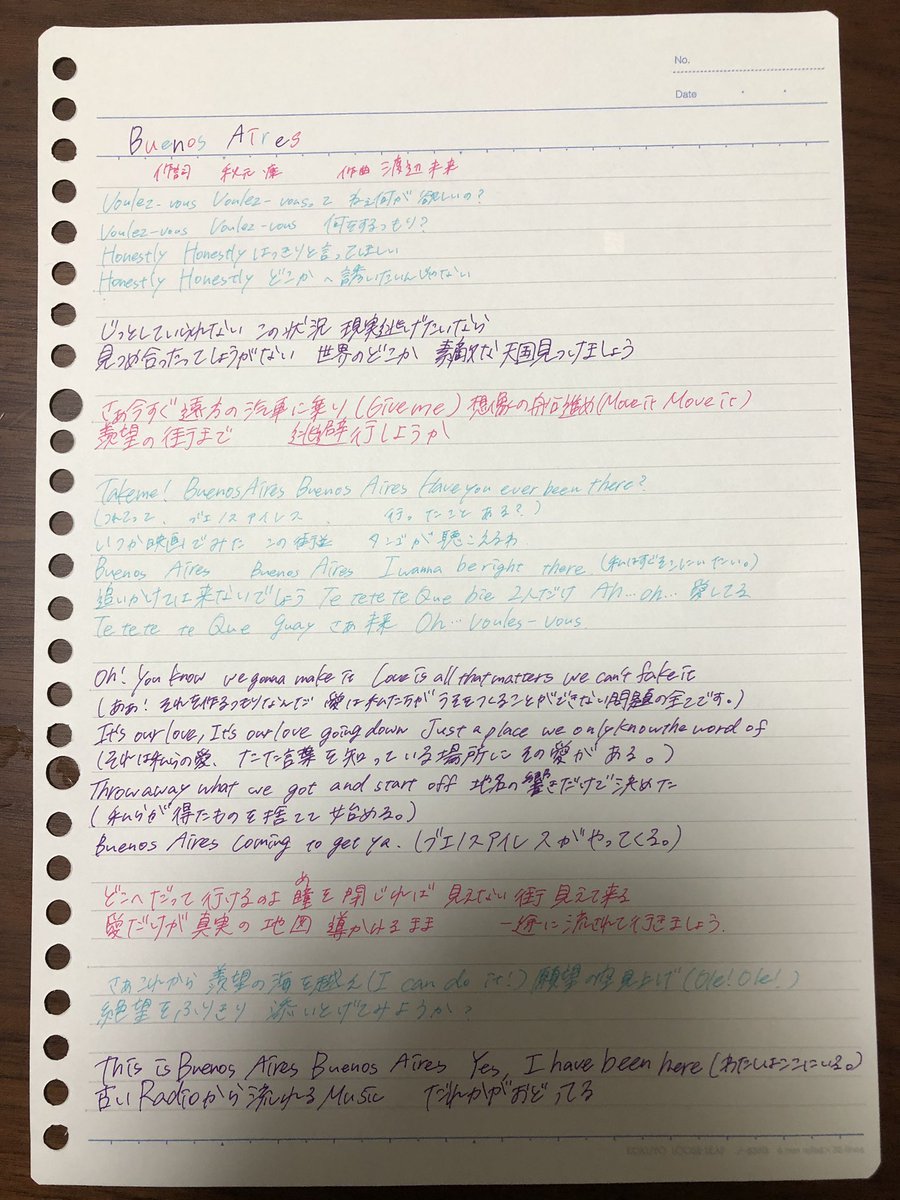 No.
Date
Buenos Aires
作詞 秋元 康 作曲 渡辺 未来
Voulez-vous Voulez-vous。って ねえ何が欲しいの?
Voulez-vous Voulez-vous 何をするつもり?
Honestly Honestly はっきりと言ってほしい
Honestly Honestly どこかへ誘いたいんじゃない
じっとしていられない この状況 現実逃げたいなら
見つめ合ったってしょうがない 世界のどこか 素敵な天国見つけましょう
さあ今すぐ遠方の汽車に乗り(Give me)想像の船は進め(Move it Move it)
羨望の街まで 逃避行しようか
Take me! Buenos Aires Buenos Aires Have you ever been there?
ブエノスアイレス 行ったことある?)
いつか映画でみた この街並 タンゴが聴こえるわ
Buenos Aires Buenos Aires I wanna be right there(私はすぐそこにいたい。)
追いかけては来ないでしょう Te te te te Que bie 2人だけ Ah…oh…愛してる
Te te te te Que guay さあ未来 Oh…Voules-vous
Oh! You know we gonna make it Love is all that matters we can't fake it
(ああ!それを作るつもりなんだ 愛は私たちがうそをつくることができない問題の全てです。)
It's our love, It's our love going down Just a place we only know the word of
(それは私らの愛、ただ言葉を知っている場所にその愛がある。)
Throw away what we got and start off 地名の響きだけで決めた
(私らが得たものを捨てて始める。)
Buenos Aires Coming to get ya.(ブエノスアイレスがやってくる。)
どこへだって行けるのよ 瞳(め)を閉じれば 見えない街 見えて来る
愛だけが真実の地図 導かれるまま 一緒に流されて行きましょう。
さあこれから 羨望の海を越え(I can do it!)願望の空見上げ(Ole!Ole!)
絶望をふりきり 添いとげてみようか?
This is Buenos Aires Buenos Aires Yes, I have been here(わたしはここにいる。)
古いRadioから流れるMusic だれかがおどってる